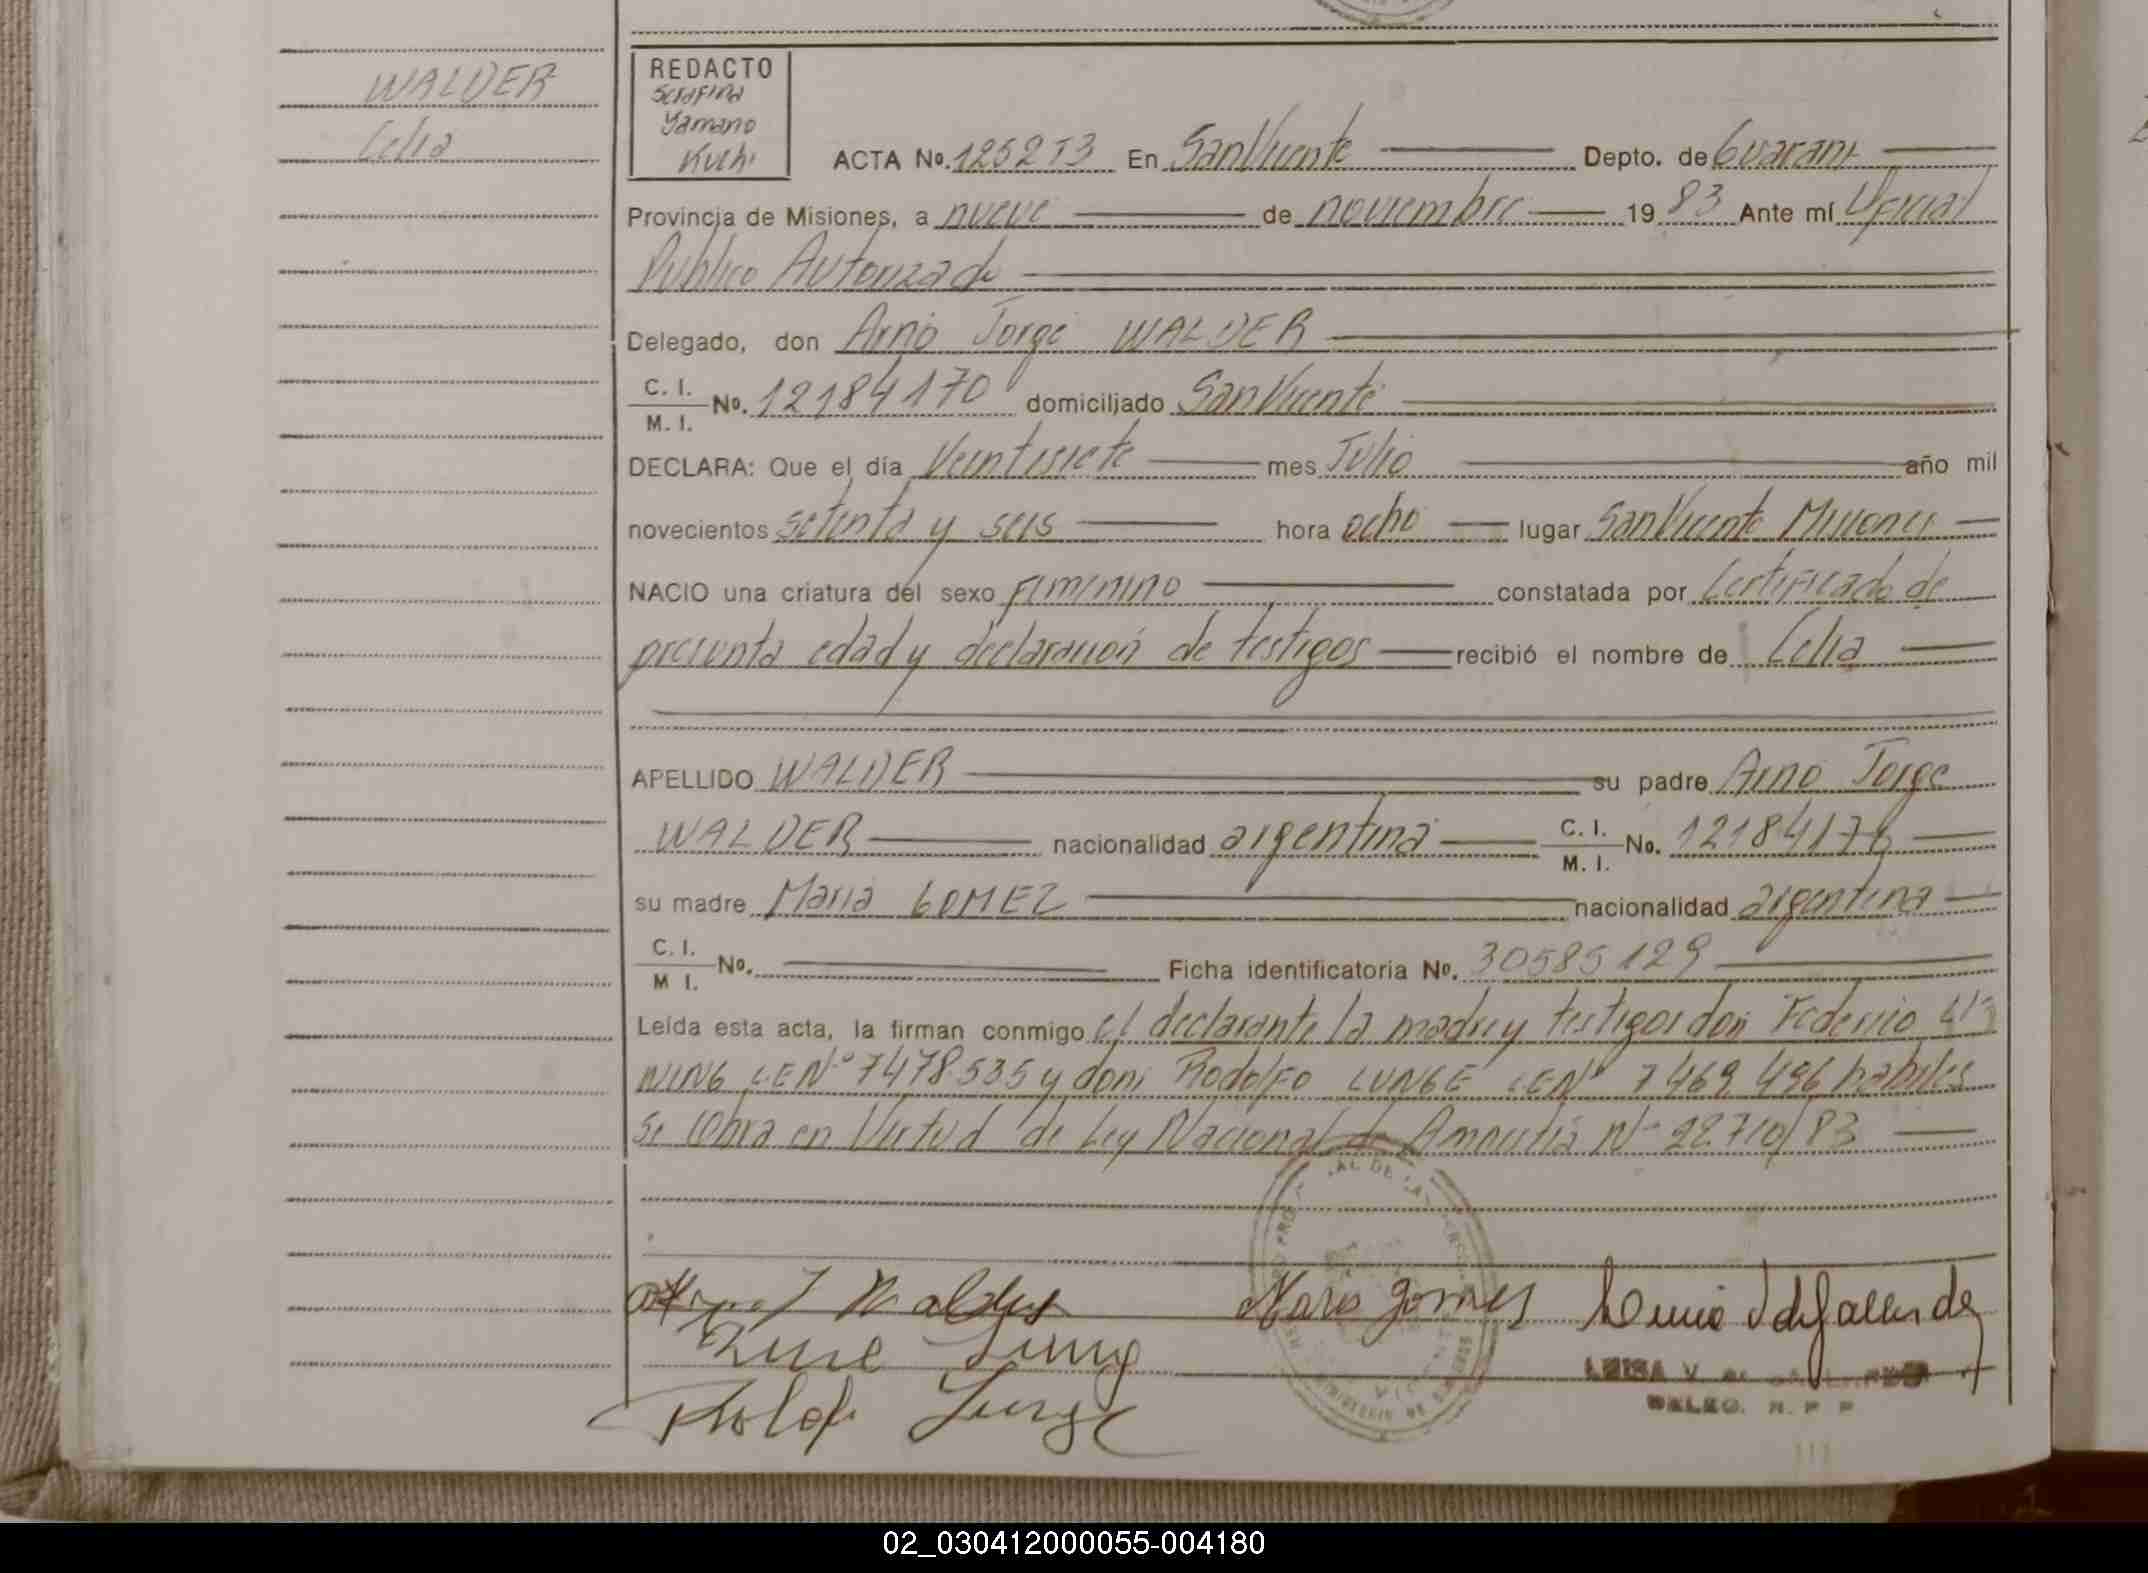 WALDER
Celia
REDACTO
Serafina
Yamano
Kuchi
ACTA No. 125 2T3 En San Vicente Depto. de Guarani
Provincia de Misiones, a nueve de noviembre 19 83 Ante mí Oficial
Publico Autorizado
Delegado, don Arno Jorge WALDER
C. I.
M. I. No. 12184170 domiciliado San Vicente
DECLARA: Que el día Veintisiete mes Julio año mil
novecientos setenta y seis hora ocho lugar San Vicente Misiones
NACIO una criatura del sexo femenino constatada por Certificado de
presunta edad y declaración de testigos recibió el nombre de Celia
APELLIDO WALDER su padre Arno Jorge
WALDER nacionalidad argentina C. I.
M. I. No. 12184170
su madre Maria GOMEZ nacionalidad argentina
C. I.
M I. No. Ficha identificatoria No. 30585129
Leída esta acta, la firman conmigo el declarante la madre y testigos don Federico
NING LE Nº 7478535 y don Rodolfo LUNGE LE Nº 7469496 habiles
Se labra en Virtud de Ley Nacional de Amnistia Nº 22710/83
J Walder Maria Gomes
LUISA V
DELEG. R. P P
02_030412000055-004180